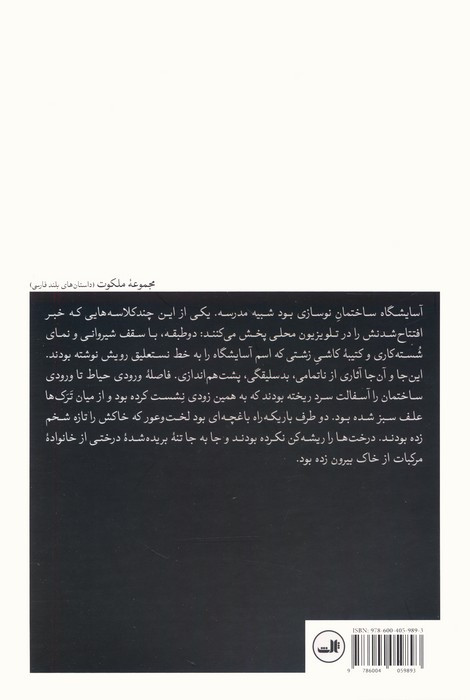 مجموعهٔ ملکوت (داستان‌های بلند فارسی)
آسایشگاه ساختمانِ نوسازی بود شبیه مدرسه. یکی از این چندکلاسه‌هایی که خبر
افتتاح‌شدنش را در تلویزیون محلی پخش می‌کنند: دوطبقه، با سقف شیروانی و نمای
شُسته‌کاری و کتیبهٔ کاشیِ زشتی که اسم آسایشگاه را به خط نستعلیق رویش نوشته بودند.
این‌جا و آن‌جا آثاری از ناتمامی، بدسلیقگی، پشت‌هم‌اندازی. فاصلهٔ ورودی حیاط تا ورودی
ساختمان را آسفالت سرد ریخته بودند که به همین زودی نشست کرده بود و از میان تَرَک‌ها
علف سبز شده بود. دو طرف باریکه‌راه باغچه‌ای بود لخت‌وعور که خاکش را تازه شخم
زده بودند. درخت‌ها را ریشه‌کن نکرده بودند و جا به جا تنهٔ بریده‌شدهٔ درختی از خانوادهٔ
مرکبات از خاک بیرون زده بود.
ISBN: 978-600-405-989-3
ثالث
9 786004 059893